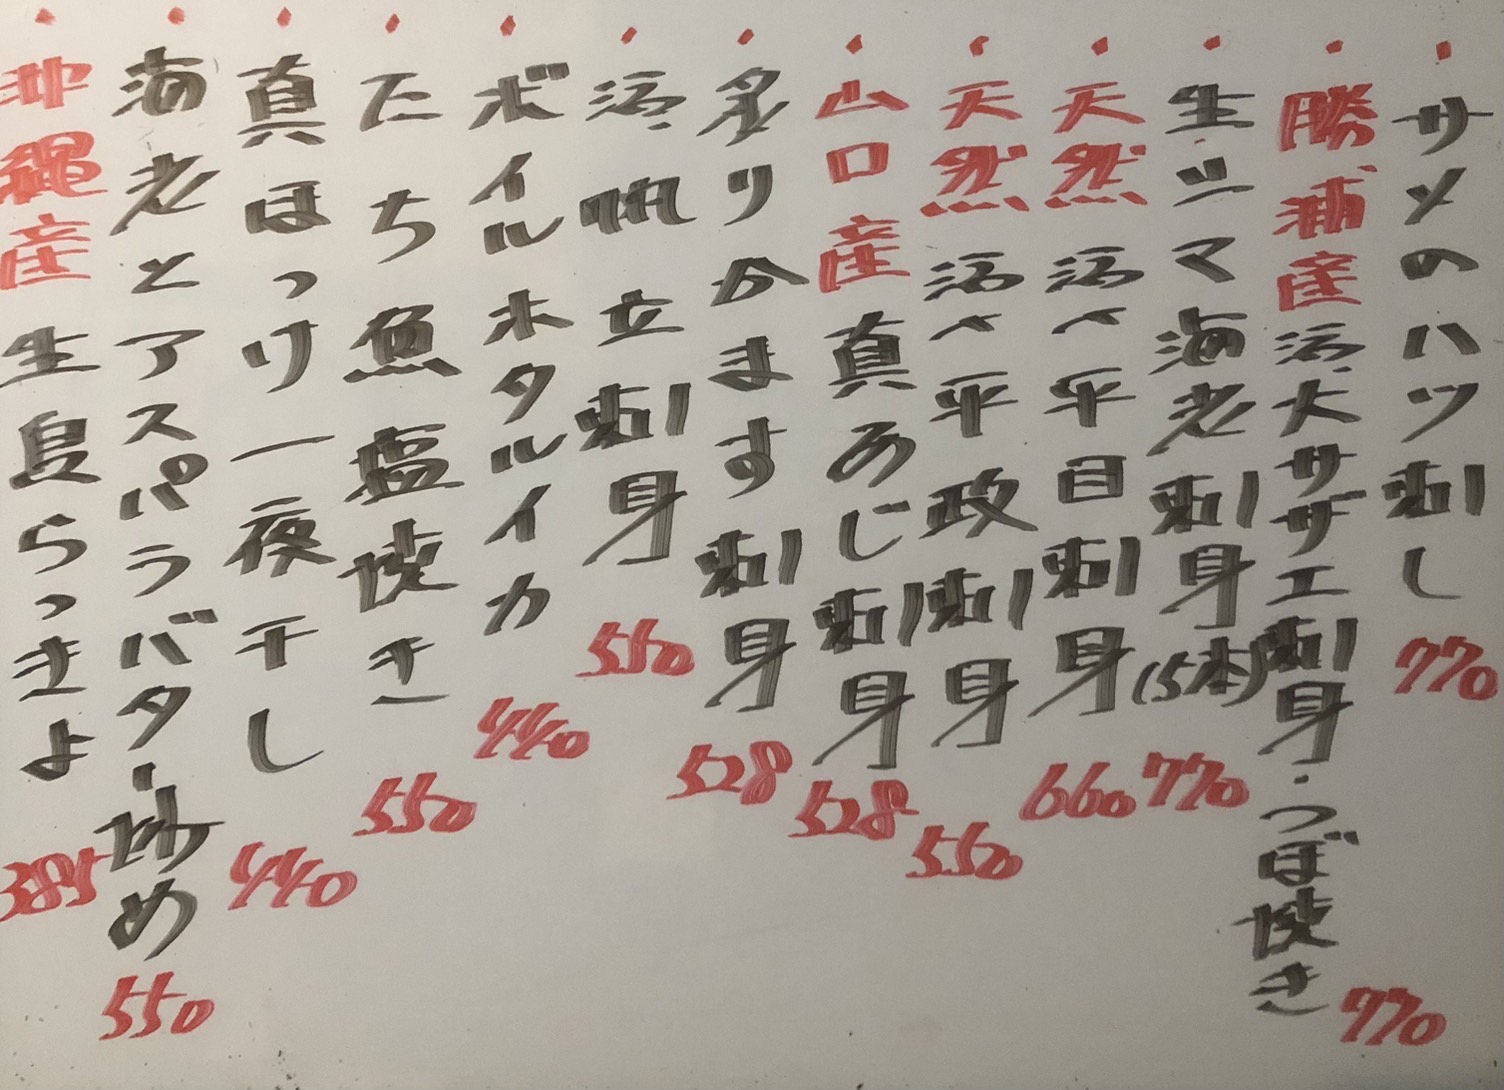 ・サメのハツ刺し 770
・勝浦産活大サザエ刺身・つぼ焼き 770
・生シマ海老刺身(5本) 770
・天然活〆平目刺身 660
・天然活〆平政刺身 550
・山口産真あじ刺身 528
・炙りかます刺身 528
・活帆立刺身 550
・ボイルホタルイカ 440
・たち魚塩焼き 550
・真ほっけ一夜干し 440
・海老とアスパラバター炒め 550
・沖縄産生島らっきょ 385